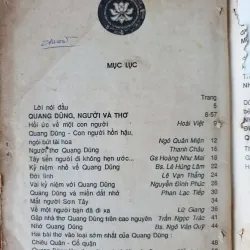 MỤC LỤC
Trang
Lời nói đầu 5
QUANG DŨNG, NGƯỜI VÀ THƠ 6-57
Hồi ức về một con người Hoài Việt 9
Quang Dũng - Con người hồn hậu,
ngòi bút tài hoa Ngô Quân Miện 12
Người thơ Quang Dũng Thanh Châu 16
Tây tiến người đi không hẹn ước... Gs Hoàng Như Mai 19
Kỷ niệm nhỏ về Quang Dũng Bs. Lê Hùng Lâm 22
Đời lính Lê Vạn Thắng 25
Vài kỷ niệm với Quang Dũng Nguyễn Đình Phúc 28
Quang Dũng và miền đất nhỏ Phan Lạc Tiếp 34
Mắt người Sơn Tây
Về một người bạn đã đi xa Lữ Giang
Gặp nhà thơ Quang Dũng trên cao nguyên Trần Ngọc Trác
Nhớ Quang Dũng Bs. Ngô Văn Quỹ
Hai bài thơ vào loại sớm nhất của Quang Dũng
Chiêu Quân - Cố quận